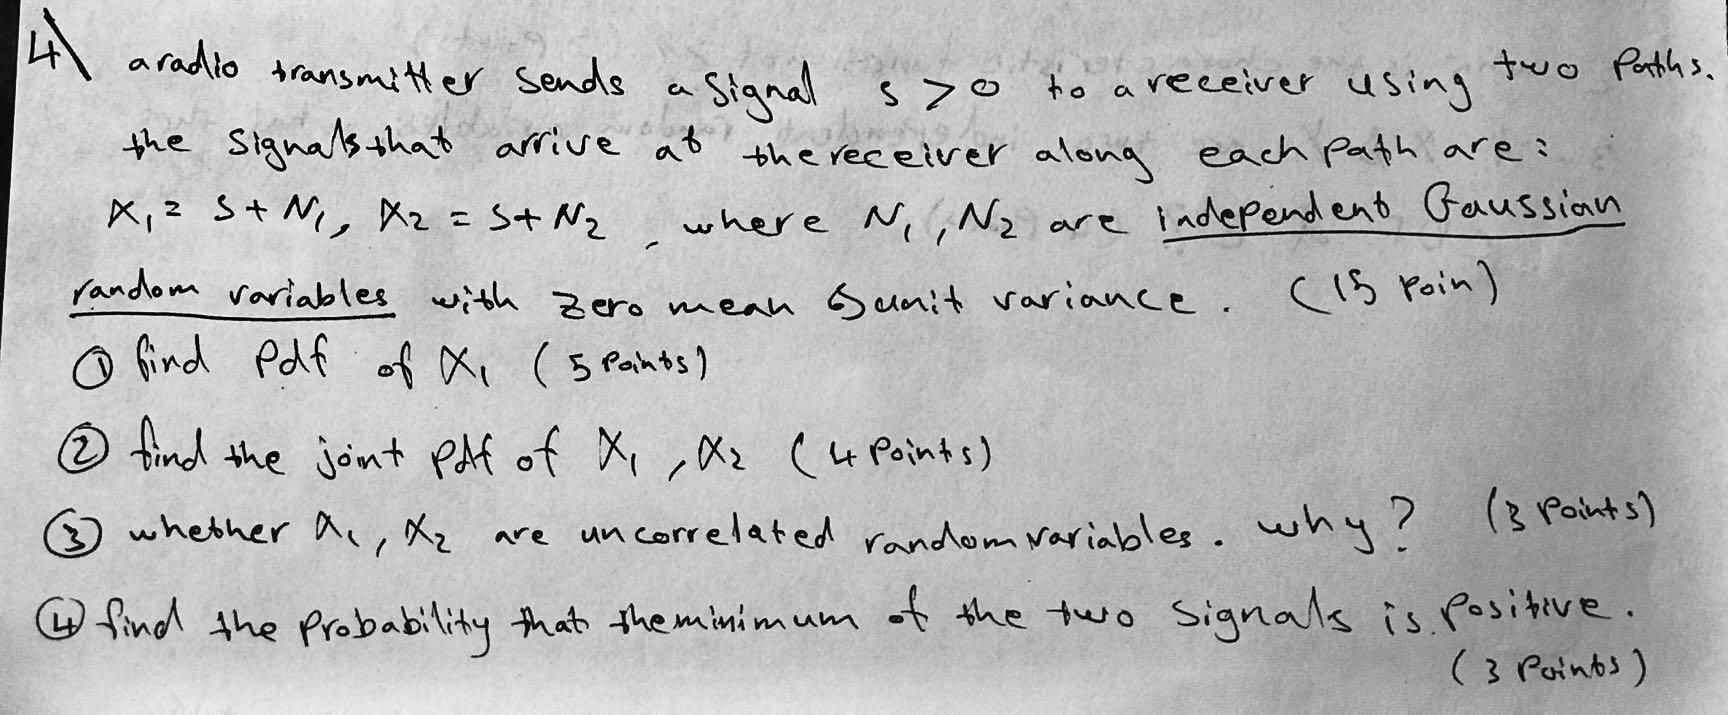 4) a radio transmitter sends a signal s > 0 to a receiver using two paths.
the signals that arrive at the receiver along each path are:
X₁ = S + N₁, X₂ = S + N₂, where N₁, N₂ are independent Gaussian
random variables with zero mean & unit variance. (15 poin)
① find Pdf of X₁ (5 Points)
② find the joint Pdf of X₁, X₂ (4 Points)
③ whether X₁, X₂ are uncorrelated random variables. why? (3 Points)
④ find the probability that the minimum of the two signals is Positive.
(3 Points)